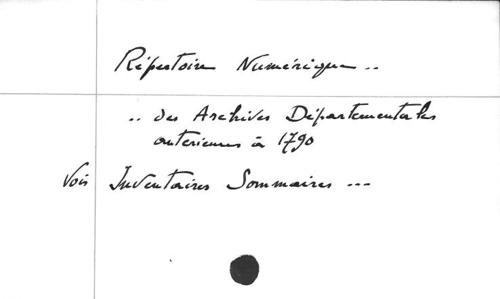 Répertoire Numérique ..
.. des Archives Départementales
anterieures à 1790
Voir Inventaires Sommaires ...